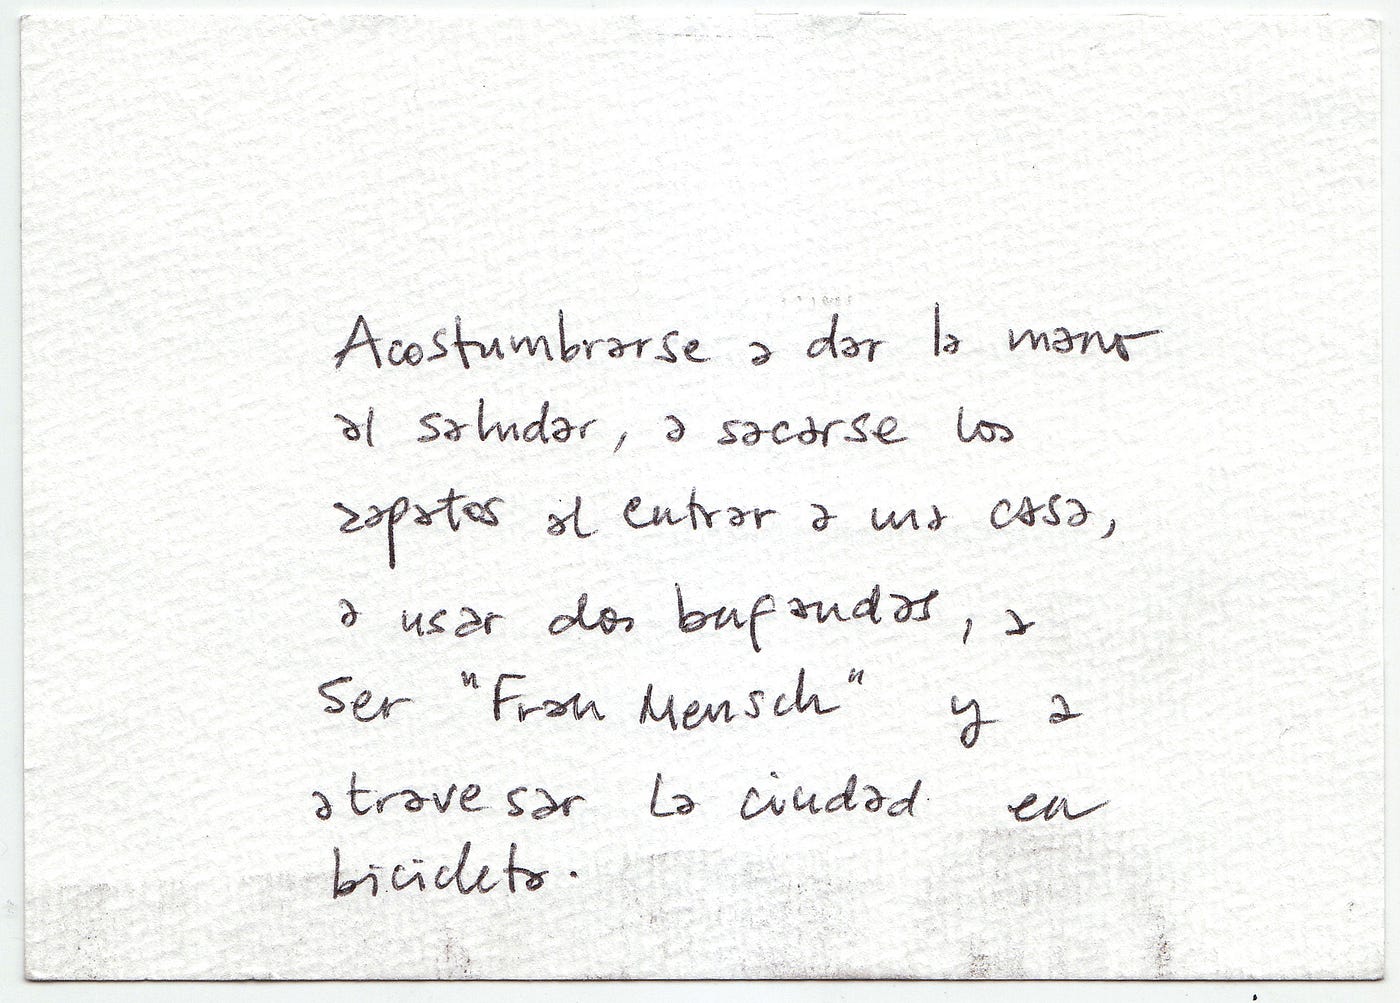 Acostumbrarse a dar la mano
al saludar, a sacarse los
zapatos al entrar a una casa,
a usar dos bufandas, a
ser "Frau Mensch" y a
atravesar la ciudad en
bicicleta.